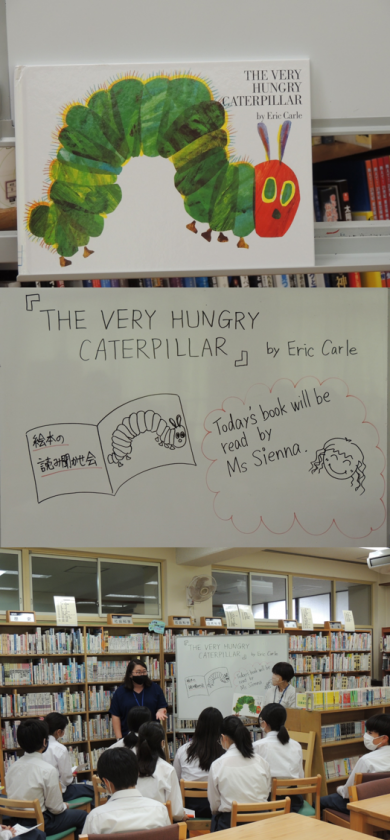 THE VERY
HUNGRY
CATERPILLAR
by Eric Carle
『THE VERY HUNGRY
CATERPILLAR』 by Eric Carle
絵本の
読み聞かせ会
Today's book will be
read by
Ms Sienna.
THE VERY HUNGRY
CATERPILLAR